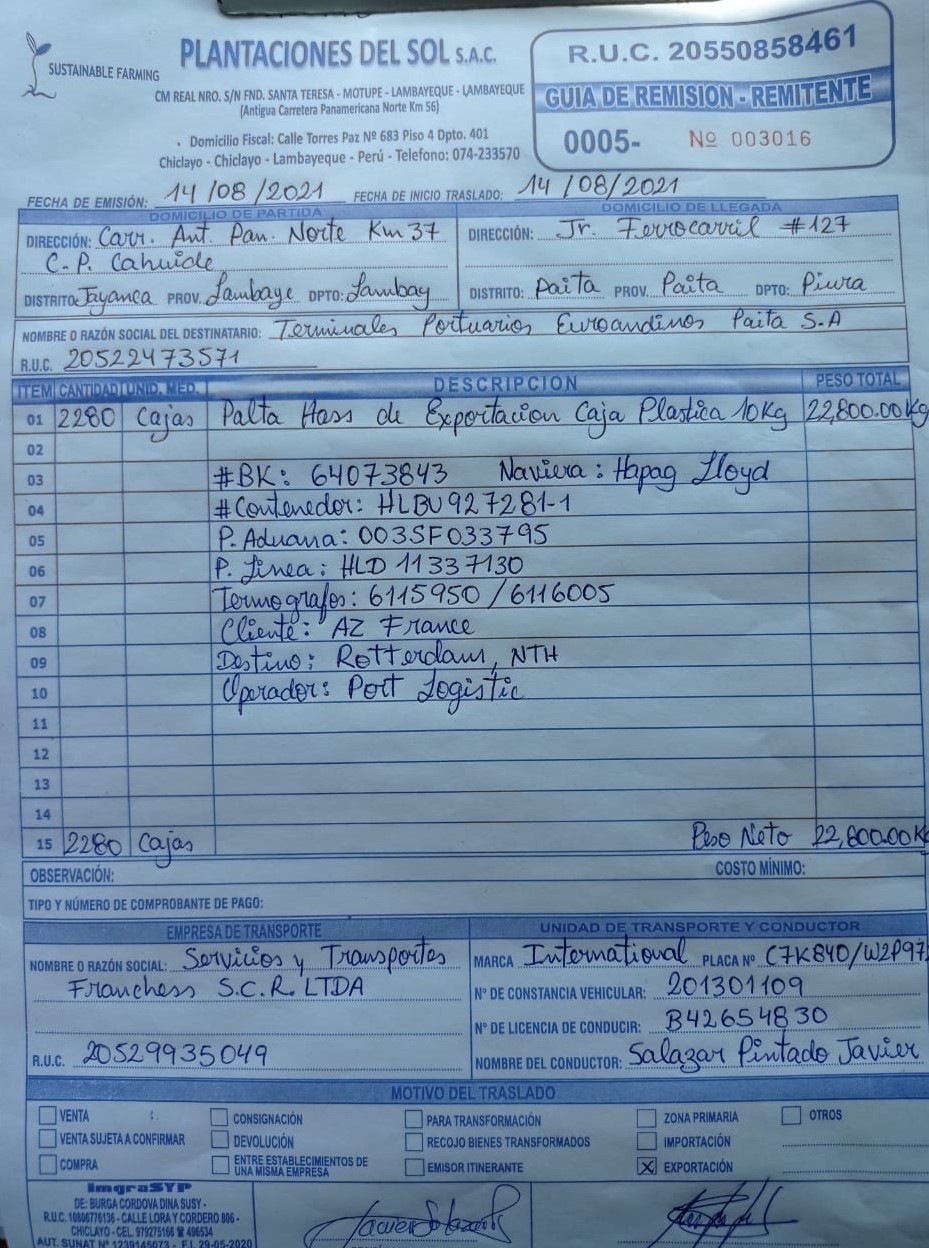 SUSTAINABLE FARMING
PLANTACIONES DEL SOL S.A.C.
CM REAL NRO. S/N FND. SANTA TERESA - MOTUPE - LAMBAYEQUE - LAMBAYEQUE
(Antigua Carretera Panamericana Norte Km 56)
Domicilio Fiscal: Calle Torres Paz Nº 683 Piso 4 Dpto. 401
Chiclayo - Chiclayo - Lambayeque - Perú - Telefono: 074-233570
R.U.C. 20550858461
GUIA DE REMISION - REMITENTE
0005- Nº 003016
FECHA DE EMISIÓN: 14/08/2021 FECHA DE INICIO TRASLADO: 14/08/2021
DOMICILIO DE PARTIDA
DIRECCIÓN: Carr. Ant. Pan. Norte Km 37
C.P. Cahuide
DISTRITO: Jayanca PROV. Lambaye DPTO: Lambay
DOMICILIO DE LLEGADA
DIRECCIÓN: Jr. Ferrocarril #127
DISTRITO: Paita PROV. Paita DPTO: Piura
NOMBRE O RAZÓN SOCIAL DEL DESTINATARIO: Terminales Portuarios Euroandinos Paita S.A
R.U.C. 20522473571
ITEM CANTIDAD UNID. MED. DESCRIPCION PESO TOTAL
01 2280 Cajas Palta Hass de Exportacion Caja Plastica 10Kg 22,800.00Kg
02
03 #BK: 64073843 Naviera: Hapag Lloyd
04 #Contenedor: HLBU927281-1
05 P. Aduana: 003SF033795
06 P. Linea: HLD 11337130
07 Termografos: 6115950/6116005
08 Cliente: AZ France
09 Destino: Rotterdam, NTH
10 Operador: Port Logistic
11
12
13
14
15 2280 Cajas Peso Neto 22,800.00K
OBSERVACIÓN: COSTO MÍNIMO:
TIPO Y NÚMERO DE COMPROBANTE DE PAGO:
EMPRESA DE TRANSPORTE
NOMBRE O RAZÓN SOCIAL: Servicios y Transportes
Franchess S.C.R.LTDA
R.U.C. 20529935049
UNIDAD DE TRANSPORTE Y CONDUCTOR
MARCA International PLACA Nº C7K840/W2P97
Nº DE CONSTANCIA VEHICULAR: 201301109
Nº DE LICENCIA DE CONDUCIR: B42654830
NOMBRE DEL CONDUCTOR: Salazar Pintado Javier
MOTIVO DEL TRASLADO
VENTA CONSIGNACIÓN PARA TRANSFORMACIÓN ZONA PRIMARIA OTROS
VENTA SUJETA A CONFIRMAR DEVOLUCIÓN RECOJO BIENES TRANSFORMADOS IMPORTACIÓN
COMPRA ENTRE ESTABLECIMIENTOS DE EMISOR ITINERANTE X EXPORTACIÓN
UNA MISMA EMPRESA
ImgraSYP
DE: BURGA CORDOVA DINA SUSY -
R.U.C. 16806776136 - CALLE LORA Y CORDERO 806 -
CHICLAYO - CEL. 979275166 ☎ 496534
AUT. SUNAT Nº 1239145073 - F.I. 29-05-2020